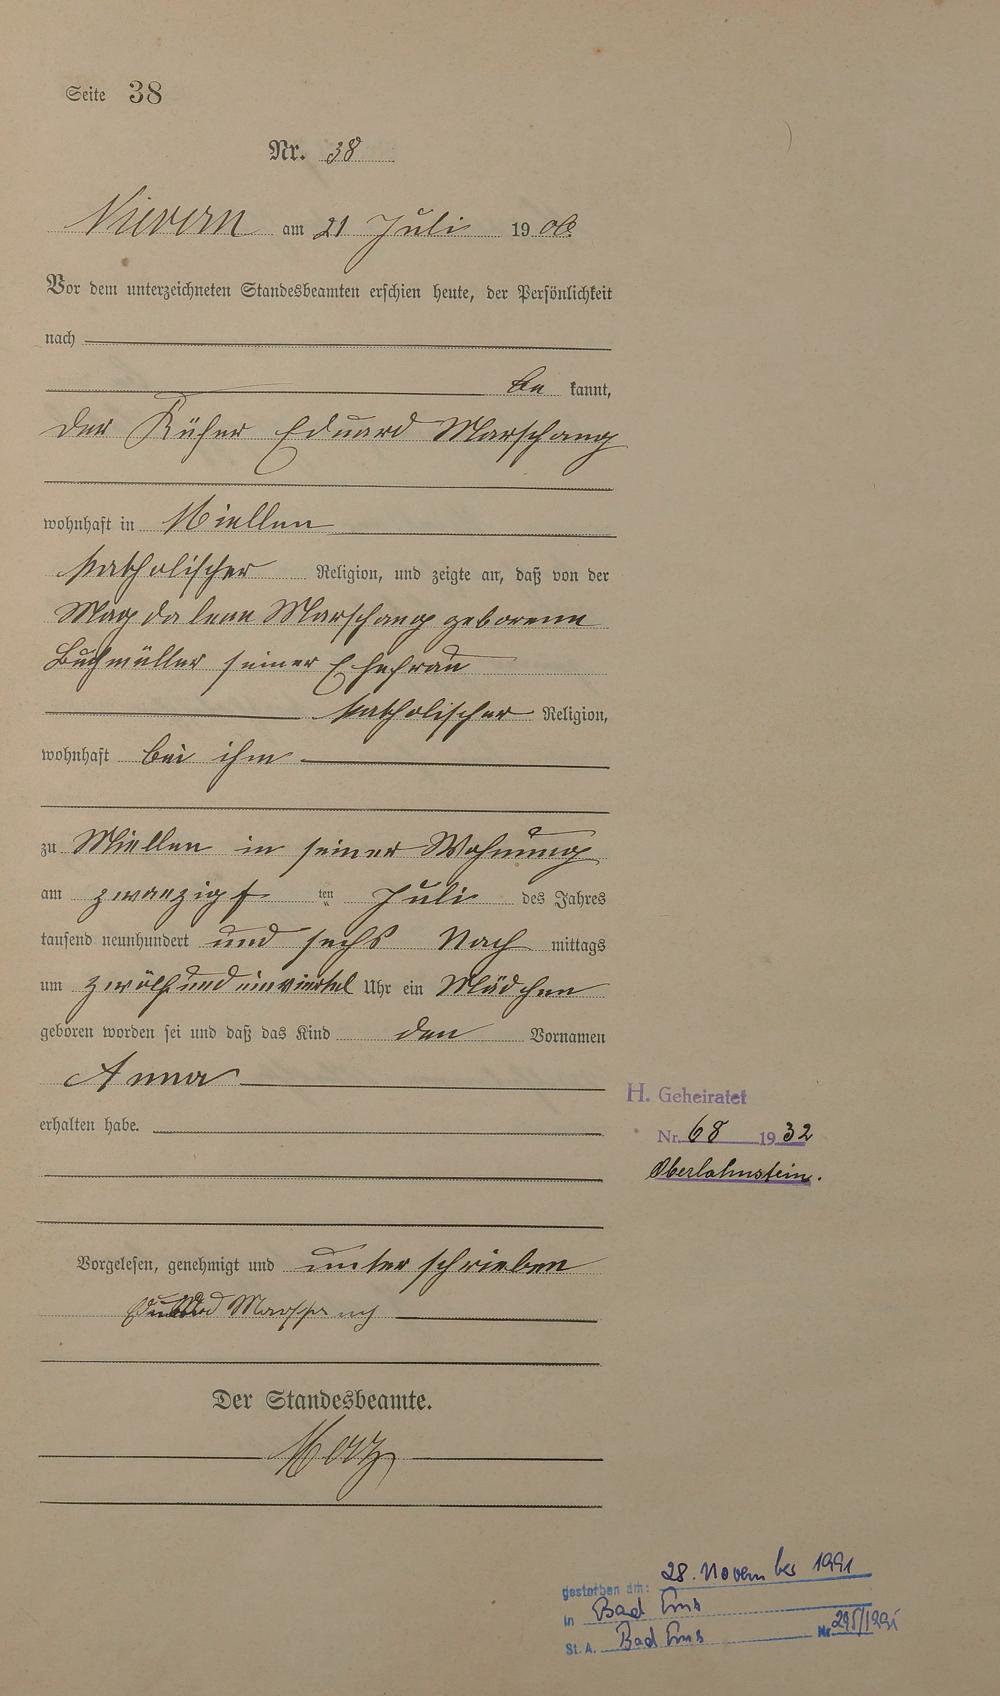 Seite 38
Nr. 38
Nievern am 21 Juli 1906
Vor dem unterzeichneten Standesbeamten erschien heute, der Persönlichkeit
nach
be kannt,
der Küfer Eduard Marschang
wohnhaft in Miellen
katholischer Religion, und zeigte an, daß von der
Magdalena Marschang geborene
Buchmüller seiner Ehefrau
katholischer Religion,
wohnhaft bei ihm
zu Miellen in seiner Wohnung
am zwanzigs ten Juli des Jahres
tausend neunhundert und sechs Nach mittags
um zwölf und einviertel Uhr ein Mädchen
geboren worden sei und daß das Kind den Vornamen
Anna
erhalten habe.
H. Geheiratet
Nr. 68 1932
Oberlahnstein.
Vorgelesen, genehmigt und unterschrieben
Eduard Marschang
Der Standesbeamte.
gestorben am: 28. November 1991
in Bad Ems
St. A. Bad Ems Nr. 295/1991